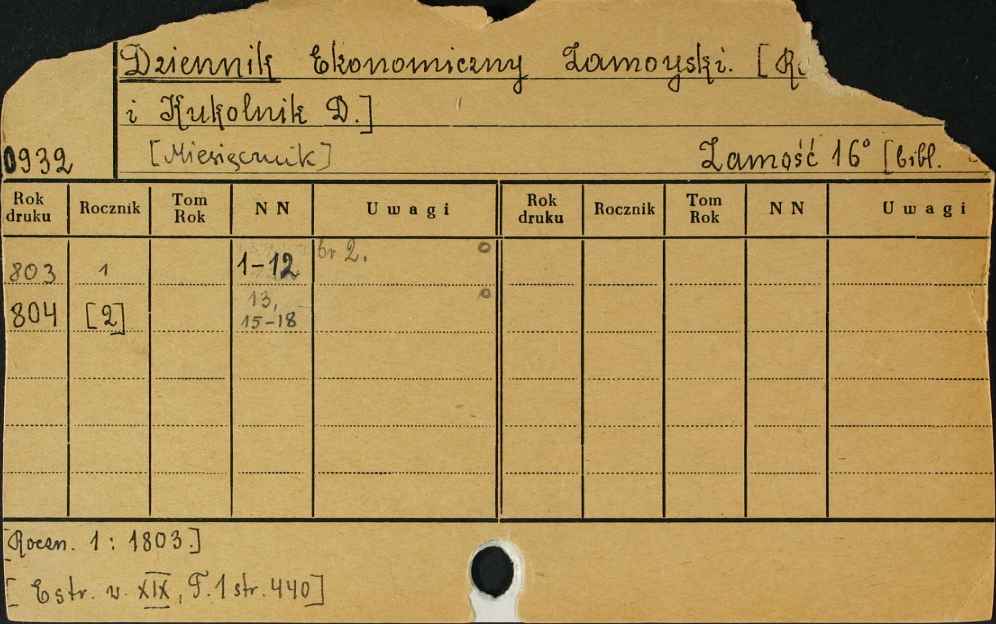 Dziennik Ekonomiczny Zamoyski. [R
i Kukolnik D.]
0932 [Miesięcznik] Zamość 16° [bibl.
Rok druku Rocznik Tom Rok NN Uwagi Rok druku Rocznik Tom Rok NN Uwagi
803 1 1-12 br 2.
804 [2] 13, 15-18
[Roczn. 1: 1803.]
[Estr. w. XIX, T.1 str. 440]